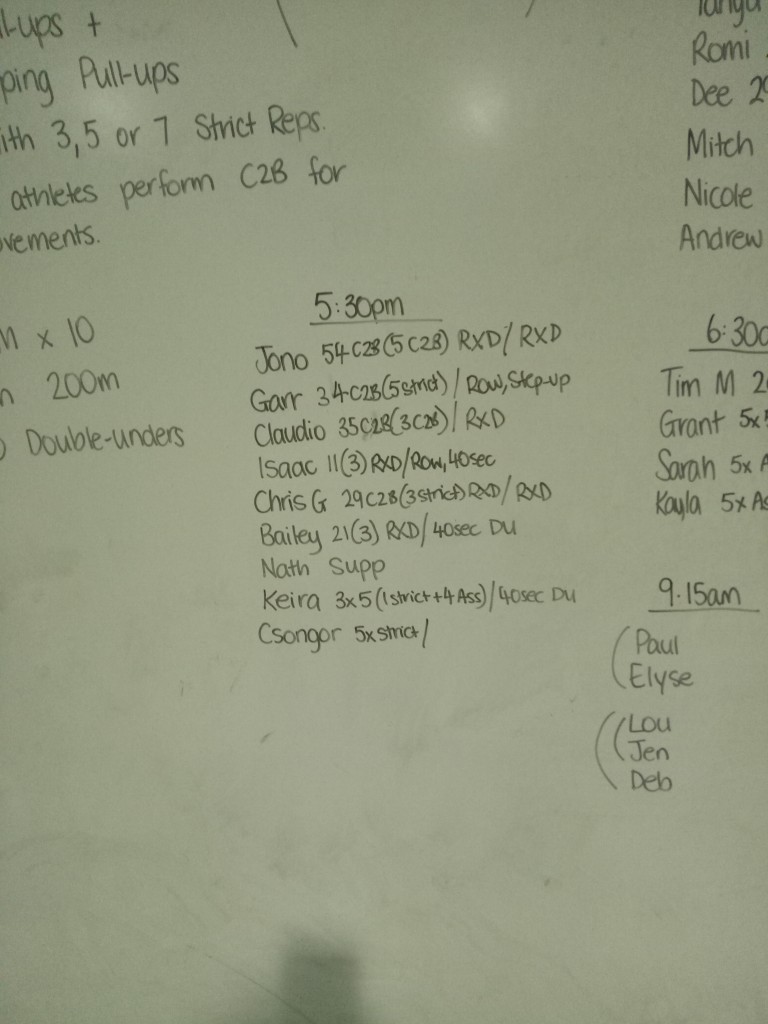 ll-ups +
ping Pull-ups
ith 3, 5 or 7 Strict Reps.
athletes perform C2B for
vements.
M x 10
n 200m
) Double-unders
5:30pm
Jono 54 C2B (5 C2B) RXD/ RXD
Garr 34 C2B (5 strict) / Row, Step-up
Claudio 35 C2B (3 C2B) / RXD
Isaac 11(3) RXD/Row, 40sec
Chris G 29 C2B (3 strict) RXD/ RXD
Bailey 21(3) RXD/ 40sec DU
Nath Supp
Keira 3x5 (1 strict + 4 Ass)/40sec DU
Csongor 5x strict/
Tanya
Romi
Dee 29
Mitch
Nicole
Andrew
6:30
Tim M 2
Grant 5x
Sarah 5x A
Kayla 5x As
9.15am
Paul
Elyse
Lou
Jen
Deb